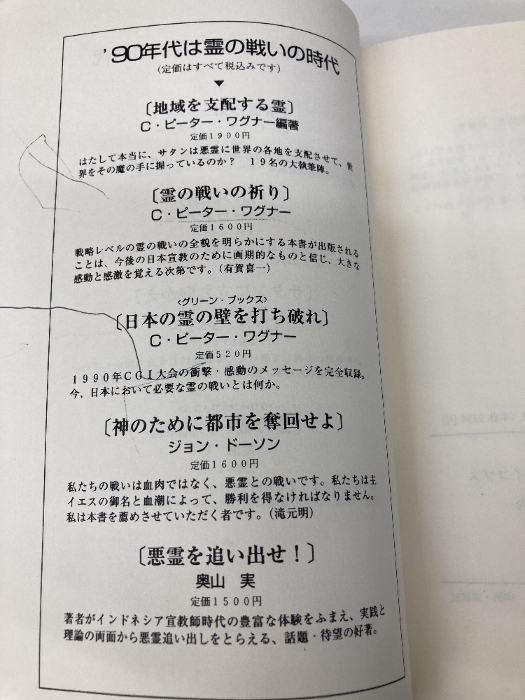 '90年代は霊の戦いの時代
(定価はすべて税込みです)
▼
〔地域を支配する霊〕
C・ピーター・ワグナー編著
定価1900円
はたして本当に、サタンは悪霊に世界の各地を支配させて、世
界をその魔の手に握っているのか? 19名の大執筆陣。
〔霊の戦いの祈り〕
C・ピーター・ワグナー
定価1600円
戦略レベルの霊の戦いの全貌を明らかにする本書が出版される
ことは、今後の日本宣教のために画期的なものと信じ、大きな
感動と感激を覚える次第です。(有賀喜一)
〈グリーン・ブックス〉
〔日本の霊の壁を打ち破れ〕
C・ピーター・ワグナー
定価520円
1990年CGI大会の衝撃・感動のメッセージを完全収録。
今、日本において必要な霊の戦いとは何か。
〔神のために都市を奪回せよ〕
ジョン・ドーソン
定価1600円
私たちの戦いは血肉ではなく、悪霊との戦いです。私たちは主
イエスの御名と血潮によって、勝利を得なければなりません。
私は本書を薦めさせていただく者です。(滝元明)
〔悪霊を追い出せ!〕
奥山 実
定価1500円
著者がインドネシア宣教師時代の豊富な体験をふまえ、実践と
理論の両面から悪霊追い出しをとらえる、話題・待望の好著。